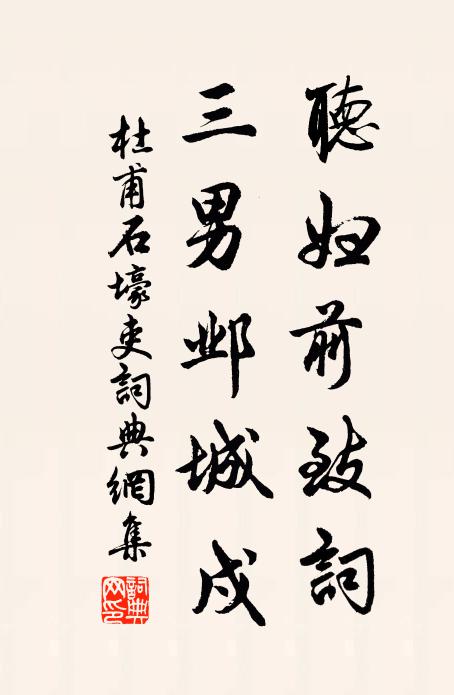 聽妇前致詞
三男邺城戍
杜甫石壕吏詞典網集
詞典網印